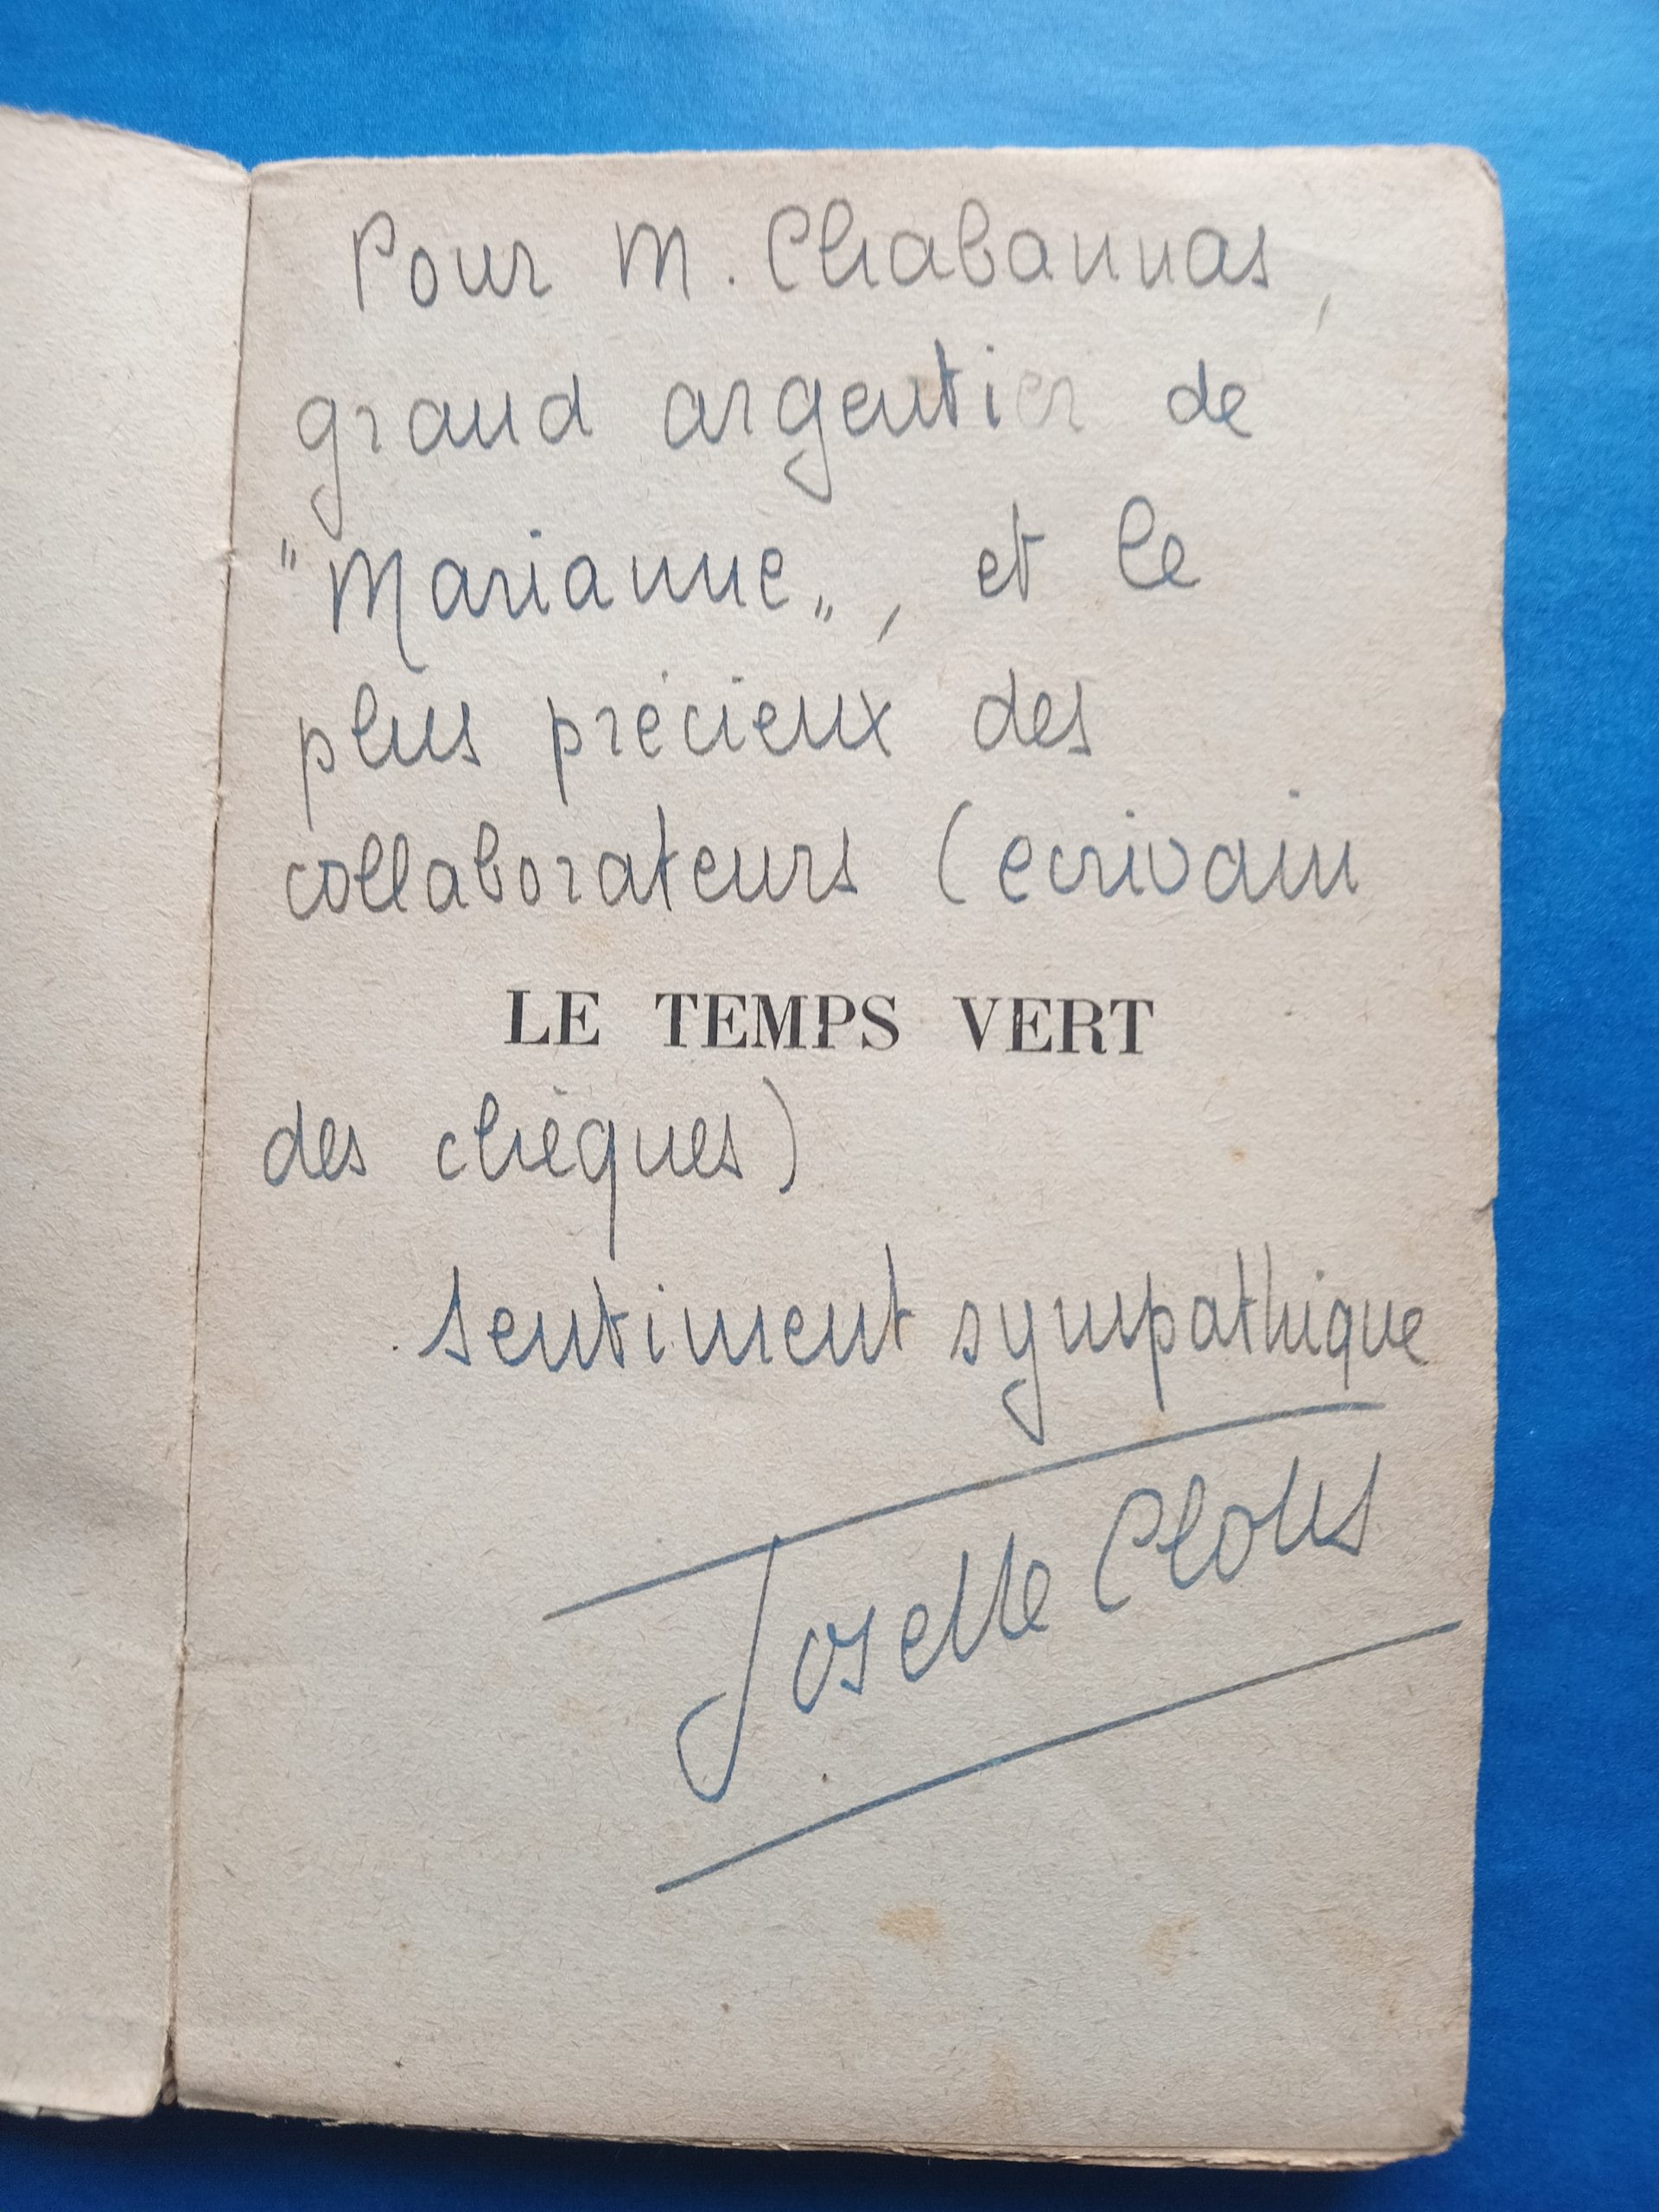 Pour M. Chabannas,
grand argentier de
"Marianne„, et le
plus précieux des
collaborateurs (ecrivain
LE TEMPS VERT
des chèques)
sentiment sympathique
Josette Clotis